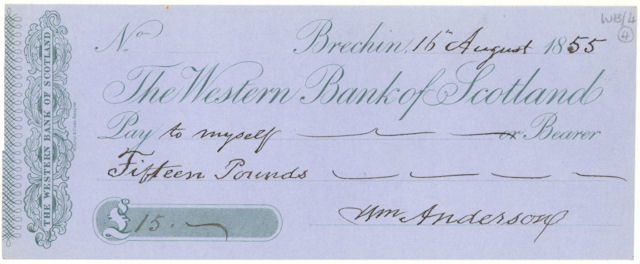 WB/4
(4)
No
Brechin, 16th August 1855
The Western Bank of Scotland
Pay to myself or Bearer
Fifteen Pounds
£15.-
Wm Anderson
THE WESTERN BANK OF SCOTLAND